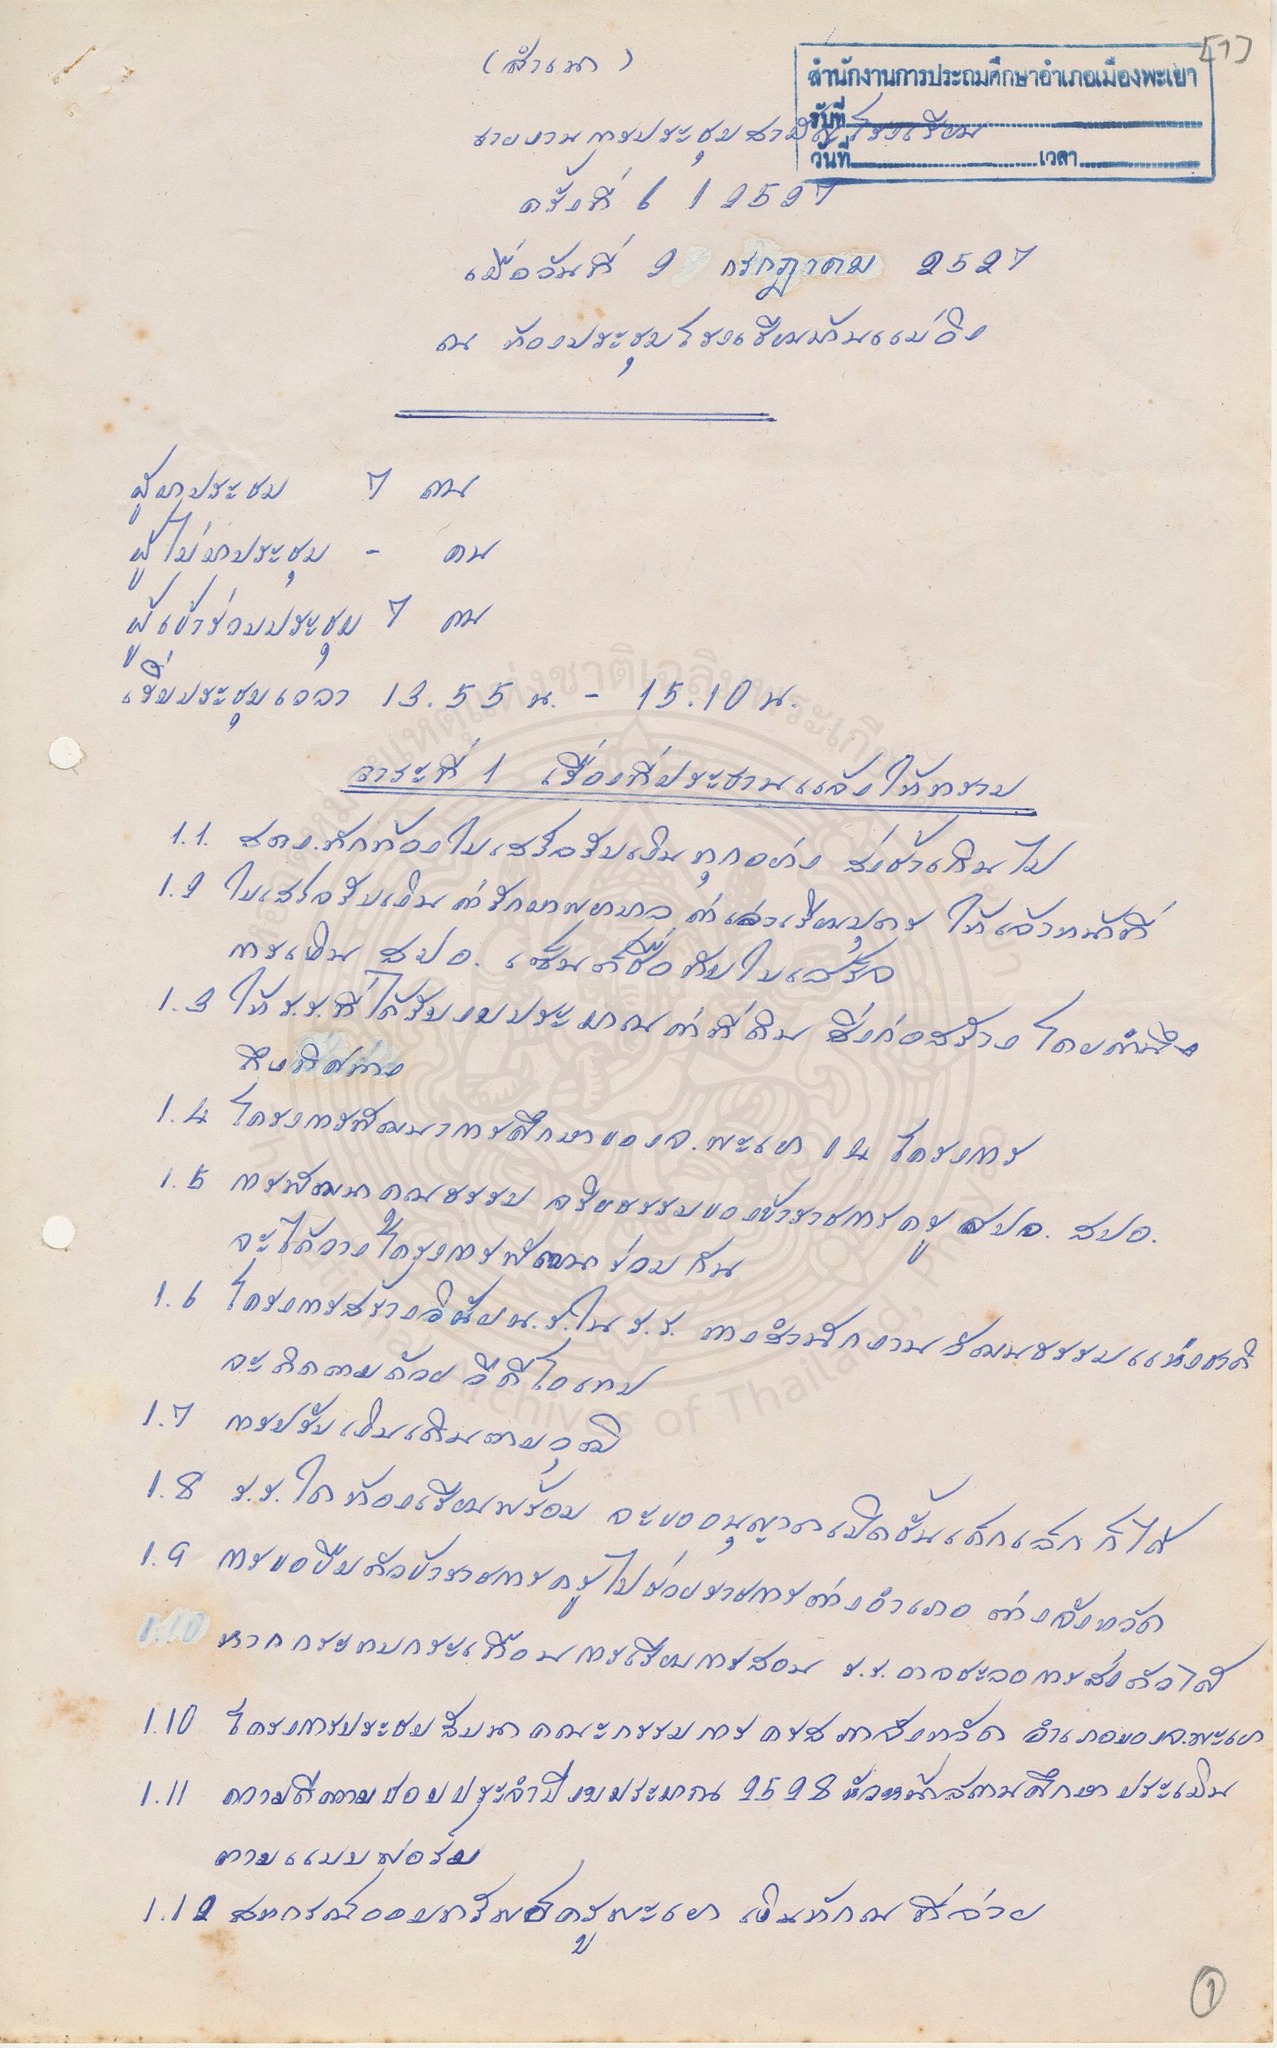 [1]
(สำเนา)
สำนักงานการประถมศึกษาอำเภอเมืองพะเยา
รับที่
วันที่ เวลา
รายงานการประชุมสามัญโรงเรียน
ครั้งที่ 6 / 2527
เมื่อวันที่ 2 กรกฎาคม 2527
ณ ห้องประชุมโรงเรียนบ้านแม่อิง
ผู้มาประชุม 7 คน
ผู้ไม่มาประชุม - คน
ผู้เข้าร่วมประชุม 7 คน
เริ่มประชุมเวลา 13.55 น. - 15.10 น.
วาระที่ 1 เรื่องที่ประธานแจ้งให้ทราบ
1.1. สตง.ทักท้วงใบเสร็จรับเงินทุกอย่าง ส่งช้าเกินไป
1.2 ใบเสร็จรับเงิน ค่ารักษาพยาบาล ค่าเล่าเรียนบุตร ให้เจ้าหน้าที่
การเงิน สปอ. เซ็นต์ชื่อทับใบเสร็จ
1.3 ให้ ร.ร.ที่ได้รับงบประมาณค่าที่ดิน สิ่งก่อสร้าง โดยคำนึง
ถึงทิศทาง
1.4 โครงการพัฒนาการศึกษาของจ.พะเยา 14 โครงการ
1.5 การพัฒนาคุณธรรม จริยธรรมของข้าราชการครู สปจ. สปอ.
จะได้วางโครงการพัฒนาร่วมกัน
1.6 โครงการสร้างวินัย น.ร.ใน ร.ร. ทางสำนักงานวัฒนธรรมแห่งชาติ
จะติดตามด้วย วีดีโอเทป
1.7 การปรับเงินเดือนตามวุฒิ
1.8 ร.ร.ใดห้องเรียนพร้อม จะขออนุญาตเปิดชั้นเด็กเล็กก็ได้
1.9 การขอยืมตัวข้าราชการครูไปช่วยราชการต่างอำเภอ ต่างจังหวัด
1.10 หากกระทบกระเทือนการเรียนการสอน ร.ร.อาจชะลอการส่งตัวได้
1.10 โครงการประชุมสัมนาคณะกรรมการคุรุสภาจังหวัด อำเภอของจ.พะเยา
1.11 ความดีความชอบประจำปีงบประมาณ 2528 หัวหน้าสถานศึกษาประเมิน
ตามแบบฟอร์ม
1.12 สหกรณ์ออมทรัพย์ครูพะเยา เงินหักณที่จ่าย
1
หอจดหมายเหตุแห่งชาติเฉลิมพระเกียรติ
National Archives of Thailand, Phayao